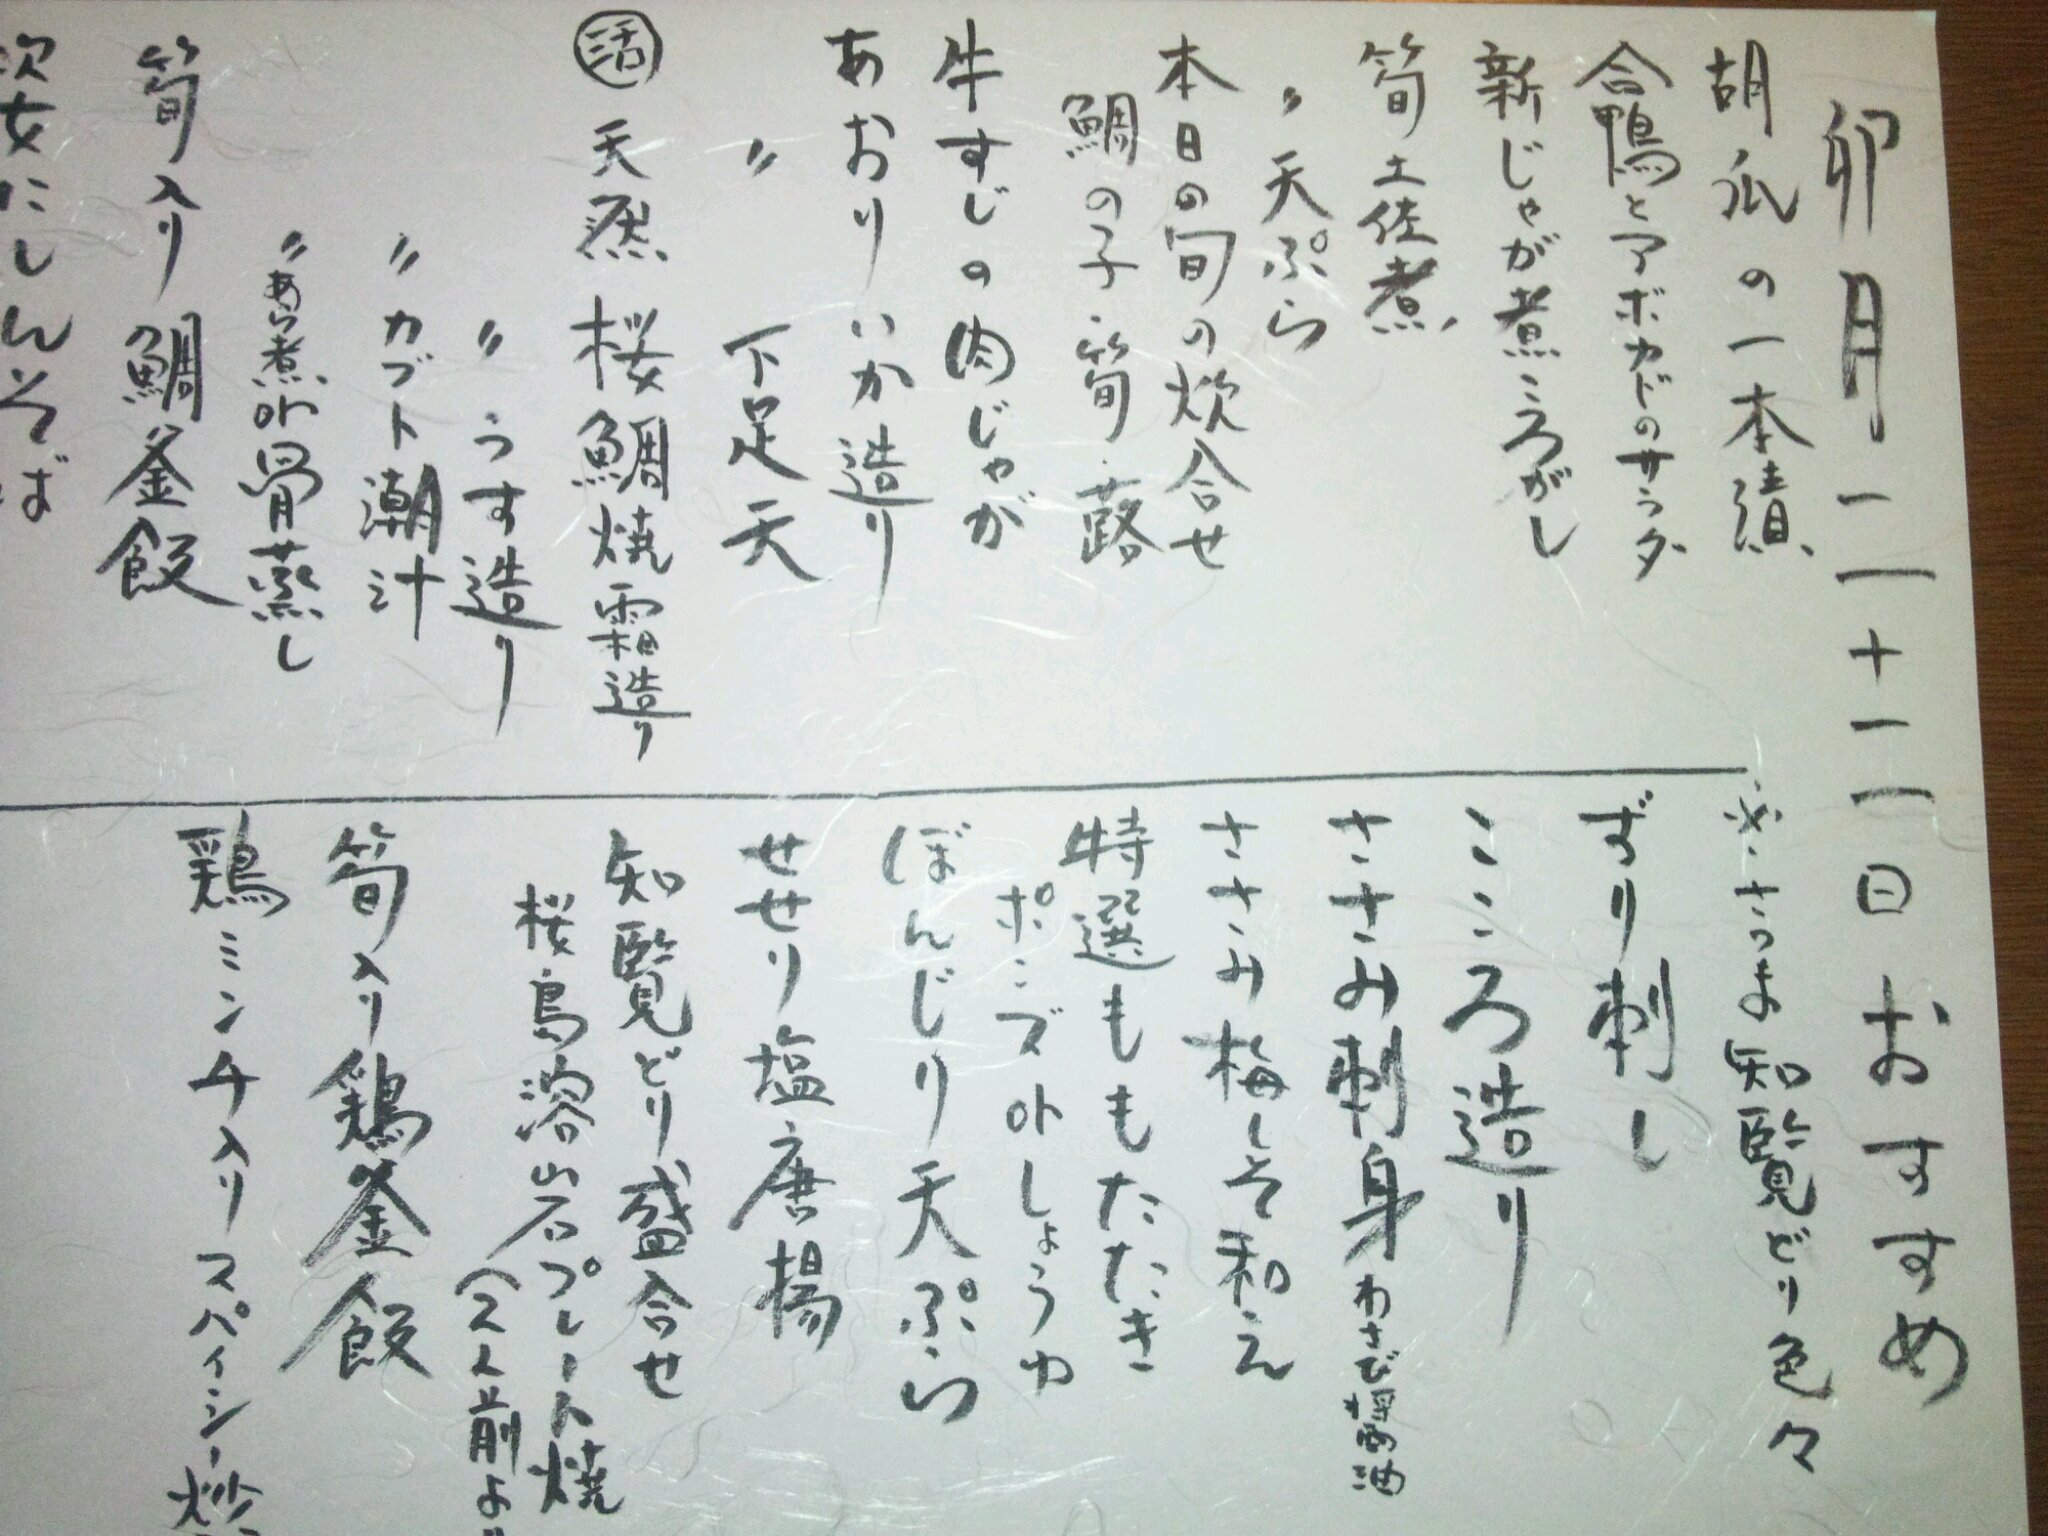 卯月二十二日おすすめ
胡瓜の一本漬
合鴨とアボカドのサラダ
新じゃが煮ころがし
筍土佐煮
〃天ぷら
本日の旬の炊合せ
鯛の子・筍・蕗
牛すじの肉じゃが
あおりいか造り
〃 下足天
活 天然桜鯛焼霜造り
〃うす造り
〃カブト潮汁
〃あら煮or骨蒸し
筍入り鯛釜飯
姿にしんそば
※さつま知覧どり色々
ずり刺し
こころ造り
ささみ刺身わさび醤油
ささみ梅しそ和え
特選ももたたき
ポンズorしょうゆ
ぼんじり天ぷら
せせり塩唐揚
知覧どり盛合せ
桜島溶岩プレート焼
(2人前よ
筍入り鶏釜飯
鶏ミンチ入りスパイシー炒